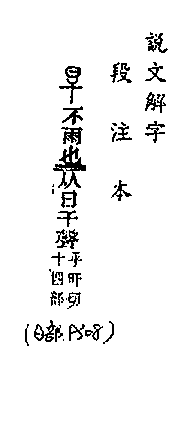 說文解字
段注本
旱不雨也从日干聲
乎旰切
十四部
(日部.P308)